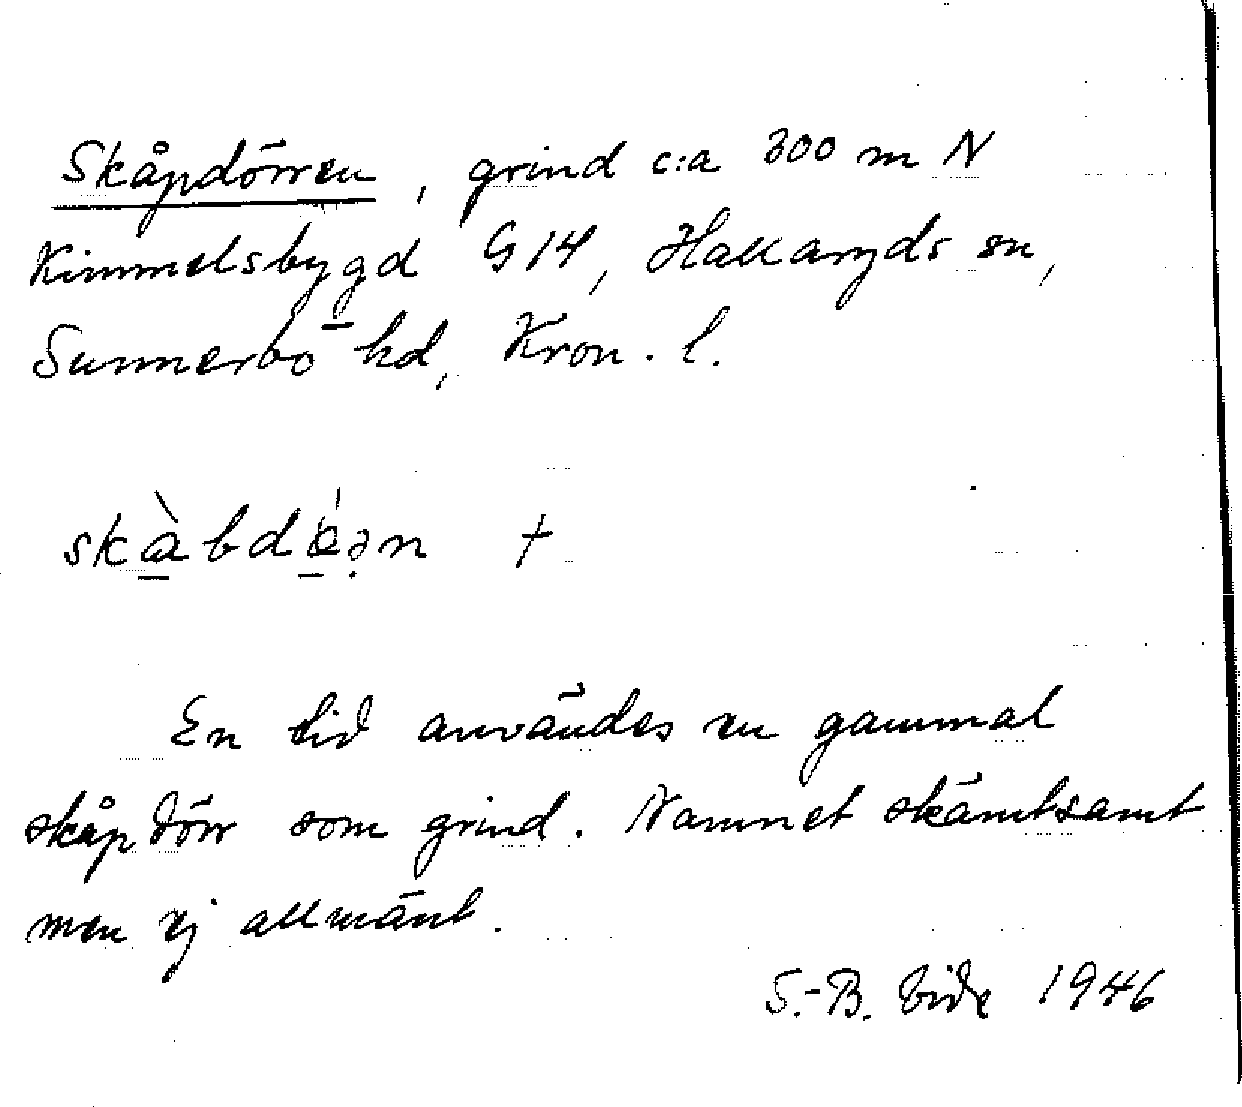 Skåpdörren, grind c:a 300 m N
Kimmelsbygd G 14, Hallaryds sn,
Sunnerbo hd, Kron. l.
En tid användes en gammal
skåpdörr som grind. Namnet skämtsamt
men ej allmänt.
S.-B. Vide 1946